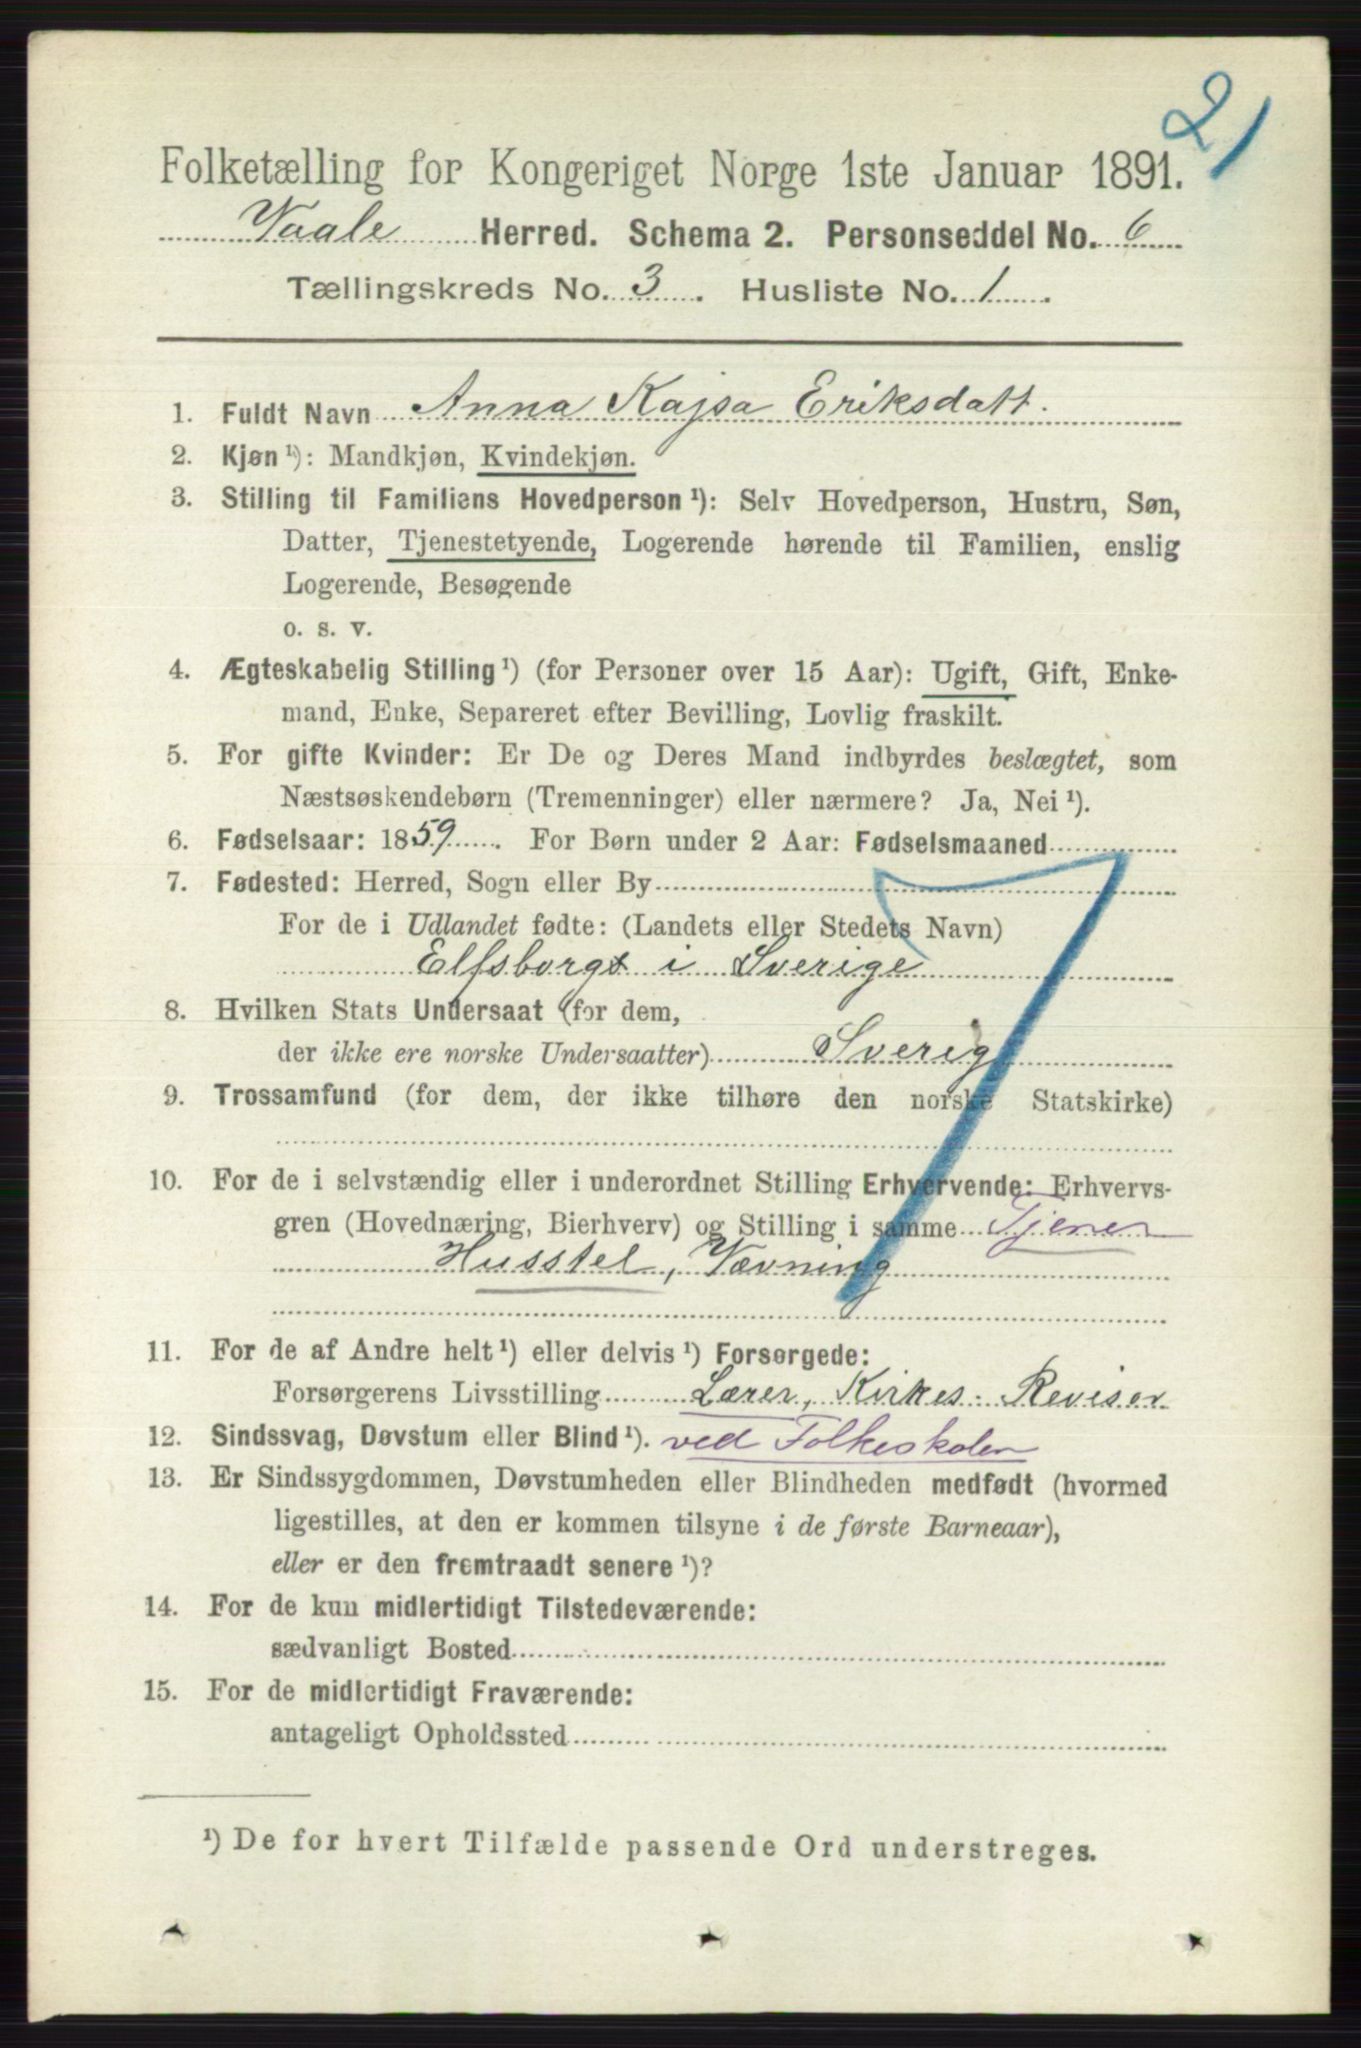 21
Folketælling for Kongeriget Norge 1ste Januar 1891.
Vaale Herred. Schema 2. Personseddel No. 6
Tællingskreds No. 3. Husliste No. 1.
1. Fuldt Navn Anna Kajsa Eriksdatt.
2. Kjøn ¹): Mandkjøn, Kvindekjøn.
3. Stilling til Familiens Hovedperson ¹): Selv Hovedperson, Hustru, Søn,
Datter, Tjenestetyende, Logerende hørende til Familien, enslig
Logerende, Besøgende
o. s. v.
4. Ægteskabelig Stilling ¹) (for Personer over 15 Aar): Ugift, Gift, Enke-
mand, Enke, Separeret efter Bevilling, Lovlig fraskilt.
5. For gifte Kvinder: Er De og Deres Mand indbyrdes beslægtet, som
Næstsøskendebørn (Tremenninger) eller nærmere? Ja, Nei ¹).
6. Fødselsaar: 1859. For Børn under 2 Aar: Fødselsmaaned
7. Fødested: Herred, Sogn eller By
For de i Udlandet fødte: (Landets eller Stedets Navn)
Elfsborgs i Sverige
8. Hvilken Stats Undersaat (for dem,
der ikke ere norske Undersaatter) Sverig
9. Trossamfund (for dem, der ikke tilhøre den norske Statskirke)
10. For de i selvstændig eller i underordnet Stilling Erhvervende: Erhvervs-
gren (Hovednæring, Bierhverv) og Stilling i samme Tjener
Husstel, Vævning
11. For de af Andre helt ¹) eller delvis ¹) Forsørgede:
Forsørgerens Livsstilling Lærer, Kirkes: Revisor
12. Sindssvag, Døvstum eller Blind ¹). ved Folkeskolen
13. Er Sindssygdommen, Døvstumheden eller Blindheden medfødt (hvormed
ligestilles, at den er kommen tilsyne i de første Barneaar),
eller er den fremtraadt senere ¹)?
14. For de kun midlertidigt Tilstedeværende:
sædvanligt Bosted
15. For de midlertidigt Fraværende:
antageligt Opholdssted
¹) De for hvert Tilfælde passende Ord understreges.